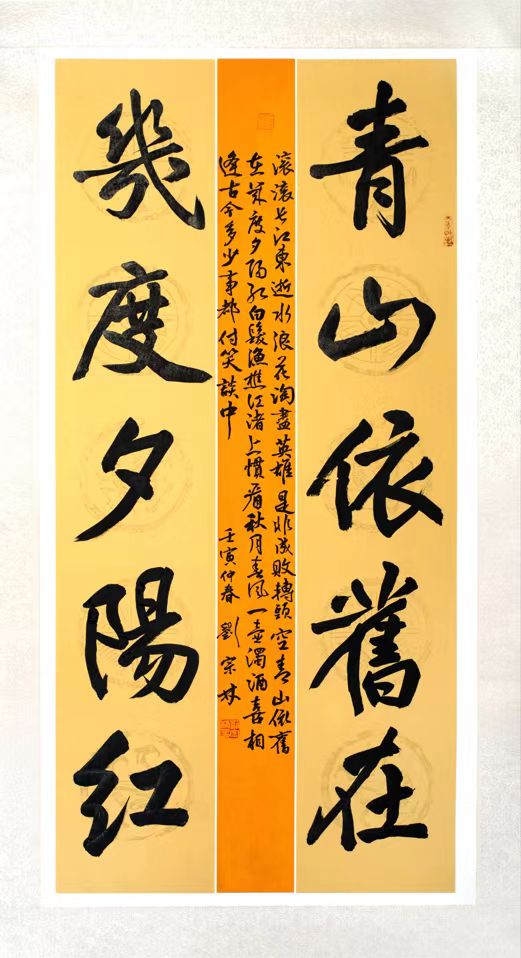 青山依舊在
滚滚长江東逝水浪花淘盡英雄是非成敗轉頭空青山依舊
在幾度夕阳红白髮漁樵江渚上慣看秋月春风一壶濁酒喜相
逢古今多少事都付笑談中 壬寅仲春 劉宗林
幾度夕陽红